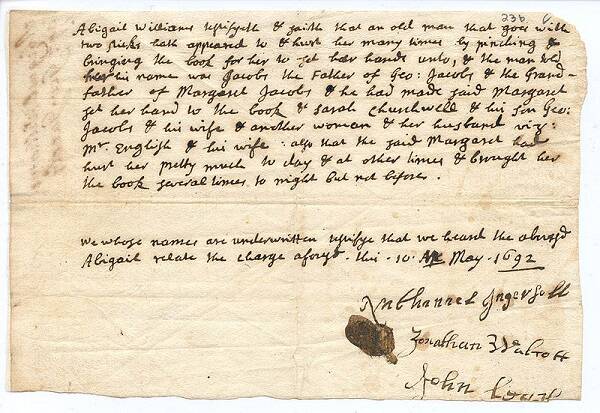 236
Abigail Williams testifyeth & saith that an old man that goes with
two sticks hath appeared to & hurt her many times by pinching &
bringing the book for her to set her hands unto, & the man told
her his name was Jacobs the Father of Geo: Jacobs & the Grand-
father of Margaret Jacobs & he had made said Margaret
set her hand to the book & Sarah Churchwell & his son Geo:
Jacobs & his wife & another woman & her husband viz:
Mr. English & his wife: also that the said Margaret had
hurt her pretty much to day & at other times & brought her
the book several times to night but not before.
We whose names are underwritten testifye that we heard the
Abigail relate the charge aforesd. this 10. May. 1692
Nathanael Ingersoll
Jonathan Walcott
John